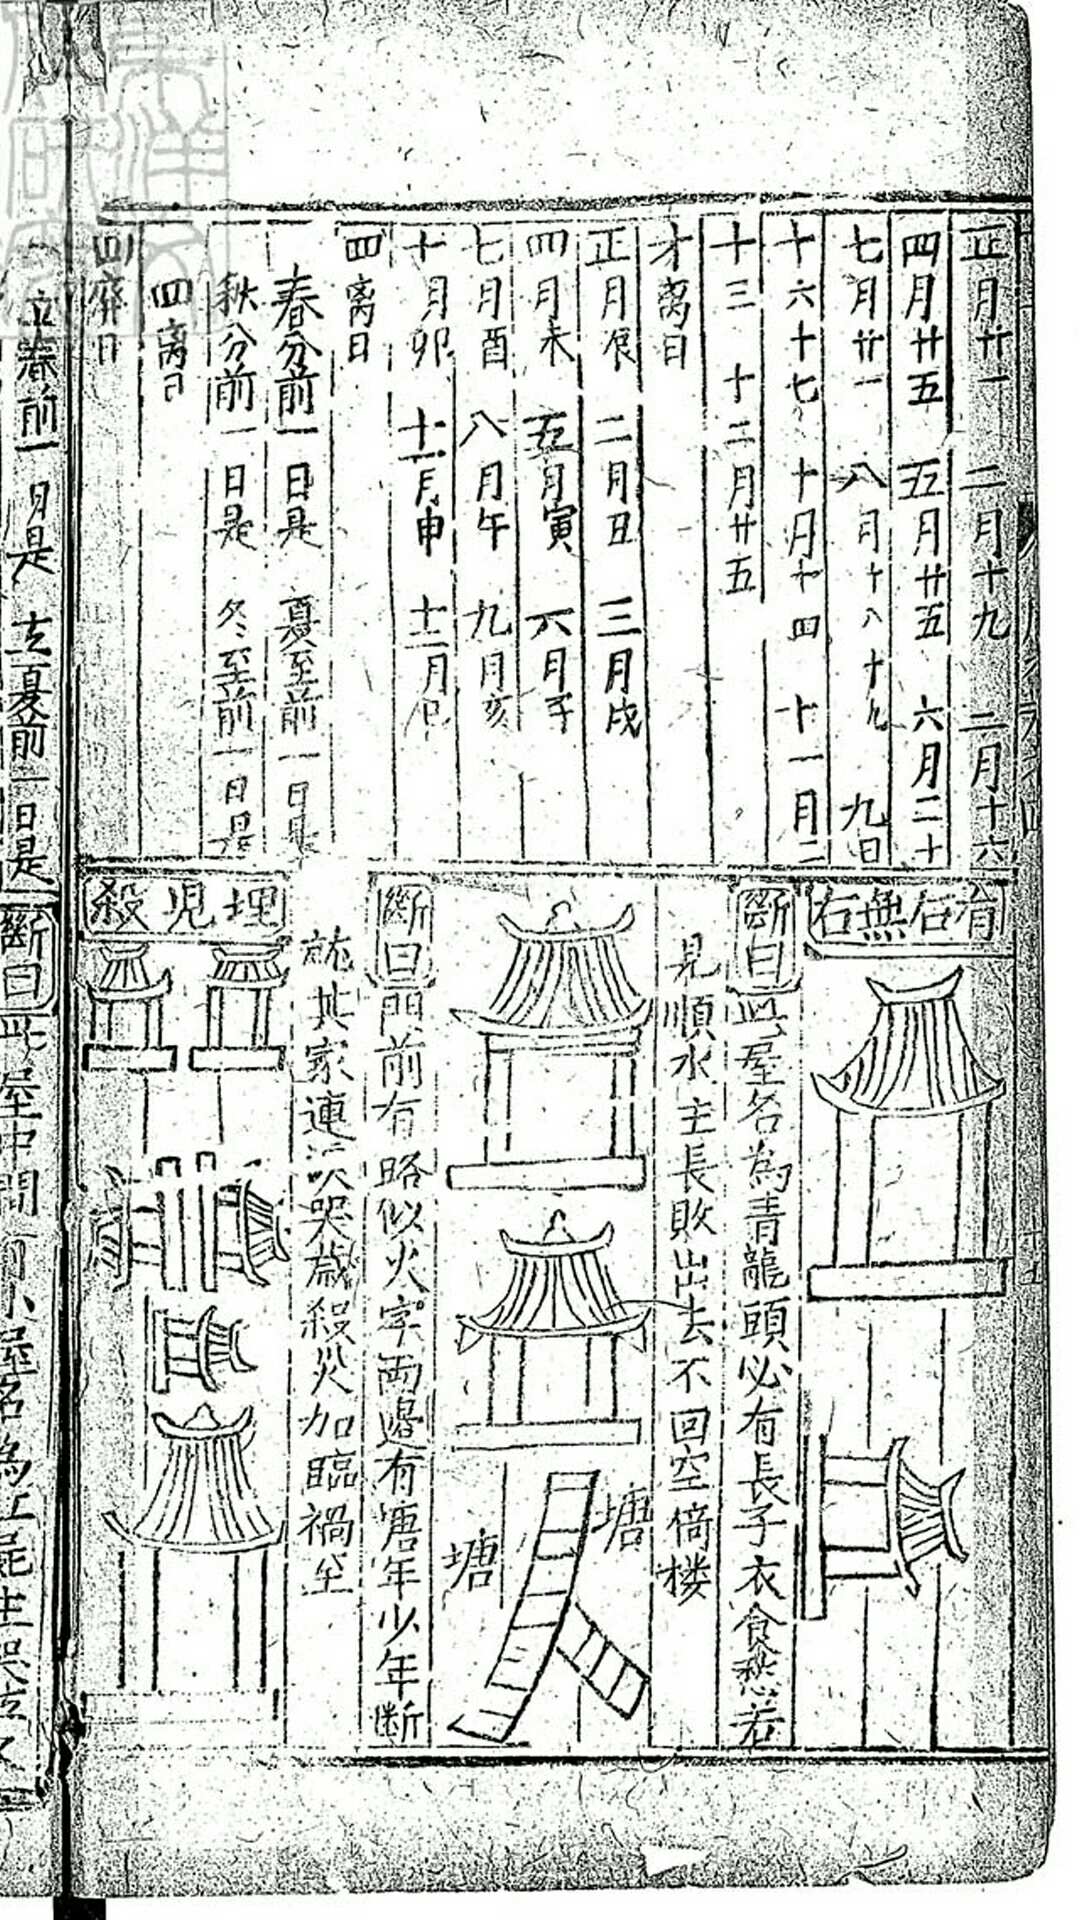 正月廿一 二月十九 二月十六
四月廿五 五月廿五 六月二十
七月廿一 八月十八十九 九日
十六十七 十月十四 十一月二
十三 十二月廿五
才离日
正月辰 二月丑 三月戌
四月未 五月寅 六月子
七月酉 八月午 九月亥
十月卯 十一月申 十二月巳
四离日
春分前一日是 夏至前一日是
秋分前一日是 冬至前一日是
四离日
四 日
立春前一日是 立夏前一日是
有右無右
斷曰此屋名為青龍頭必有長子衣食愁若
見順水主長敗出去不回空倚楼
塘
塘
斷曰門前有略似火字両邉有塘年少年断
就其家連 哭歳殺火加臨禍至
埋児殺
斷曰此屋中間有小屋名為 屍 哭泣又